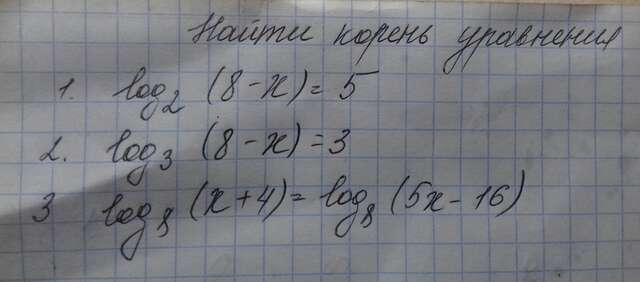 Найти корень уравнения
1. log₂ (8-x)=5
2. log₃ (8-x)=3
3 log₈ (x+4)= log₈ (5x-16)